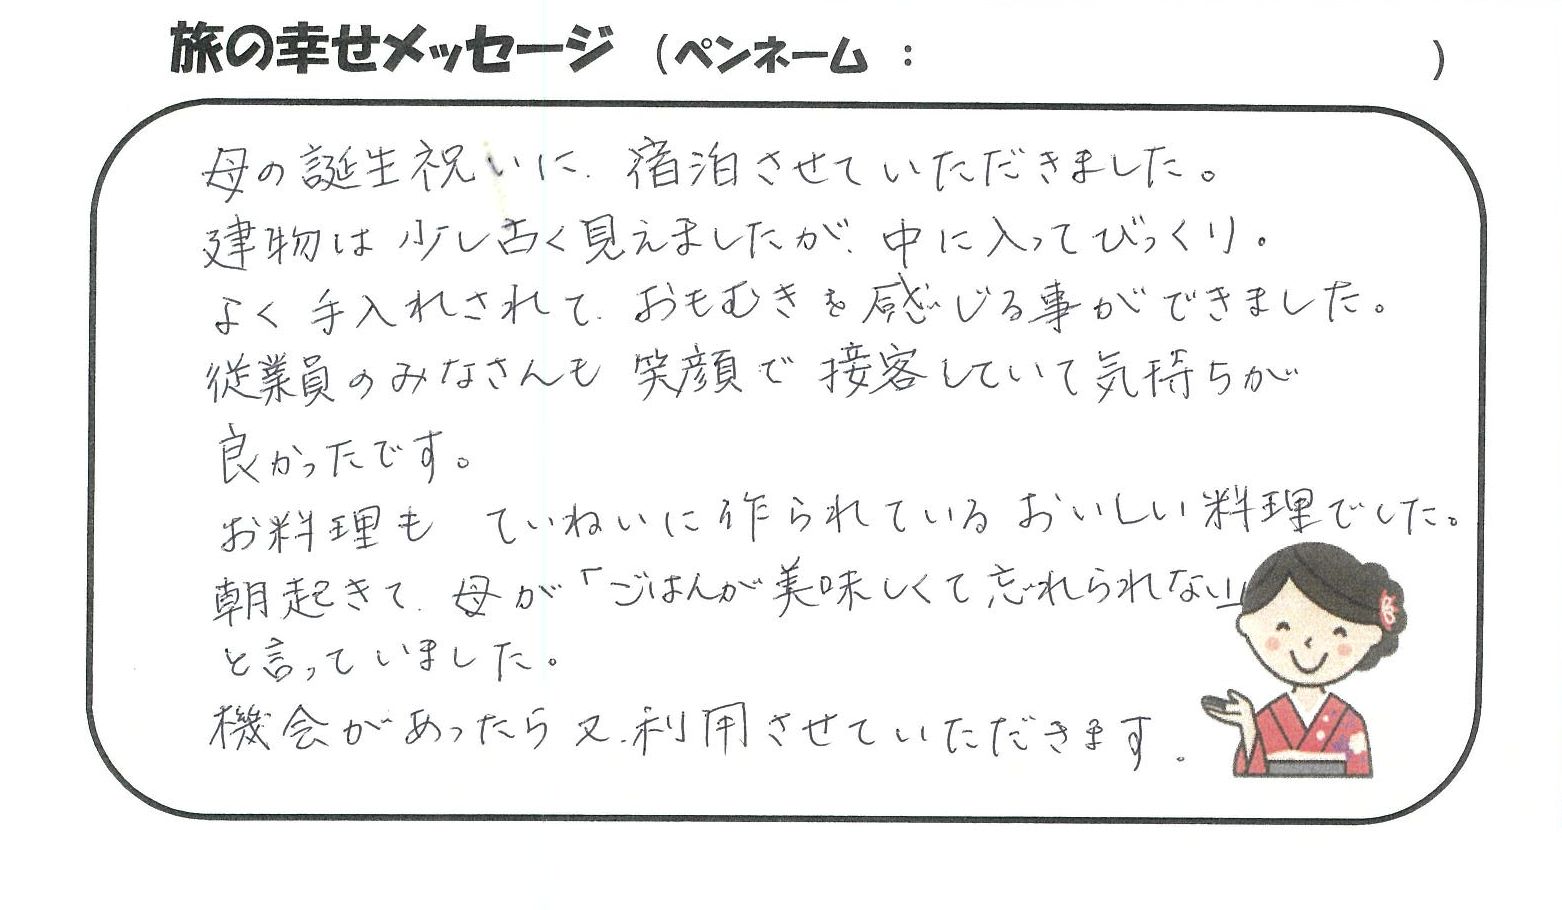 旅の幸せメッセージ （ペンネーム ： ）
母の誕生祝いに、宿泊させていただきました。
建物は少し古く見えましたが、中に入ってびっくり。
よく手入れされて、おもむきを感じる事ができました。
従業員のみなさんも 笑顔で 接客していて気持ちが
良かったです。
お料理も ていねいに作られている おいしい料理でした。
朝起きて、母が「ごはんが美味しくて忘れられない」
と言っていました。
機会があったら又、利用させていただきます。